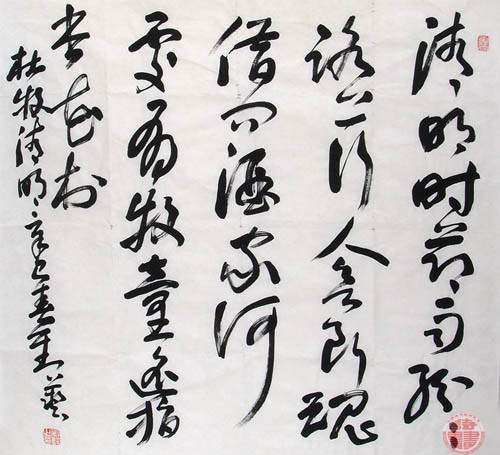 清明时节雨纷々
路上行人欲断魂
借问酒家何
处有牧童遥指
杏花村
杜牧清明辛巳春